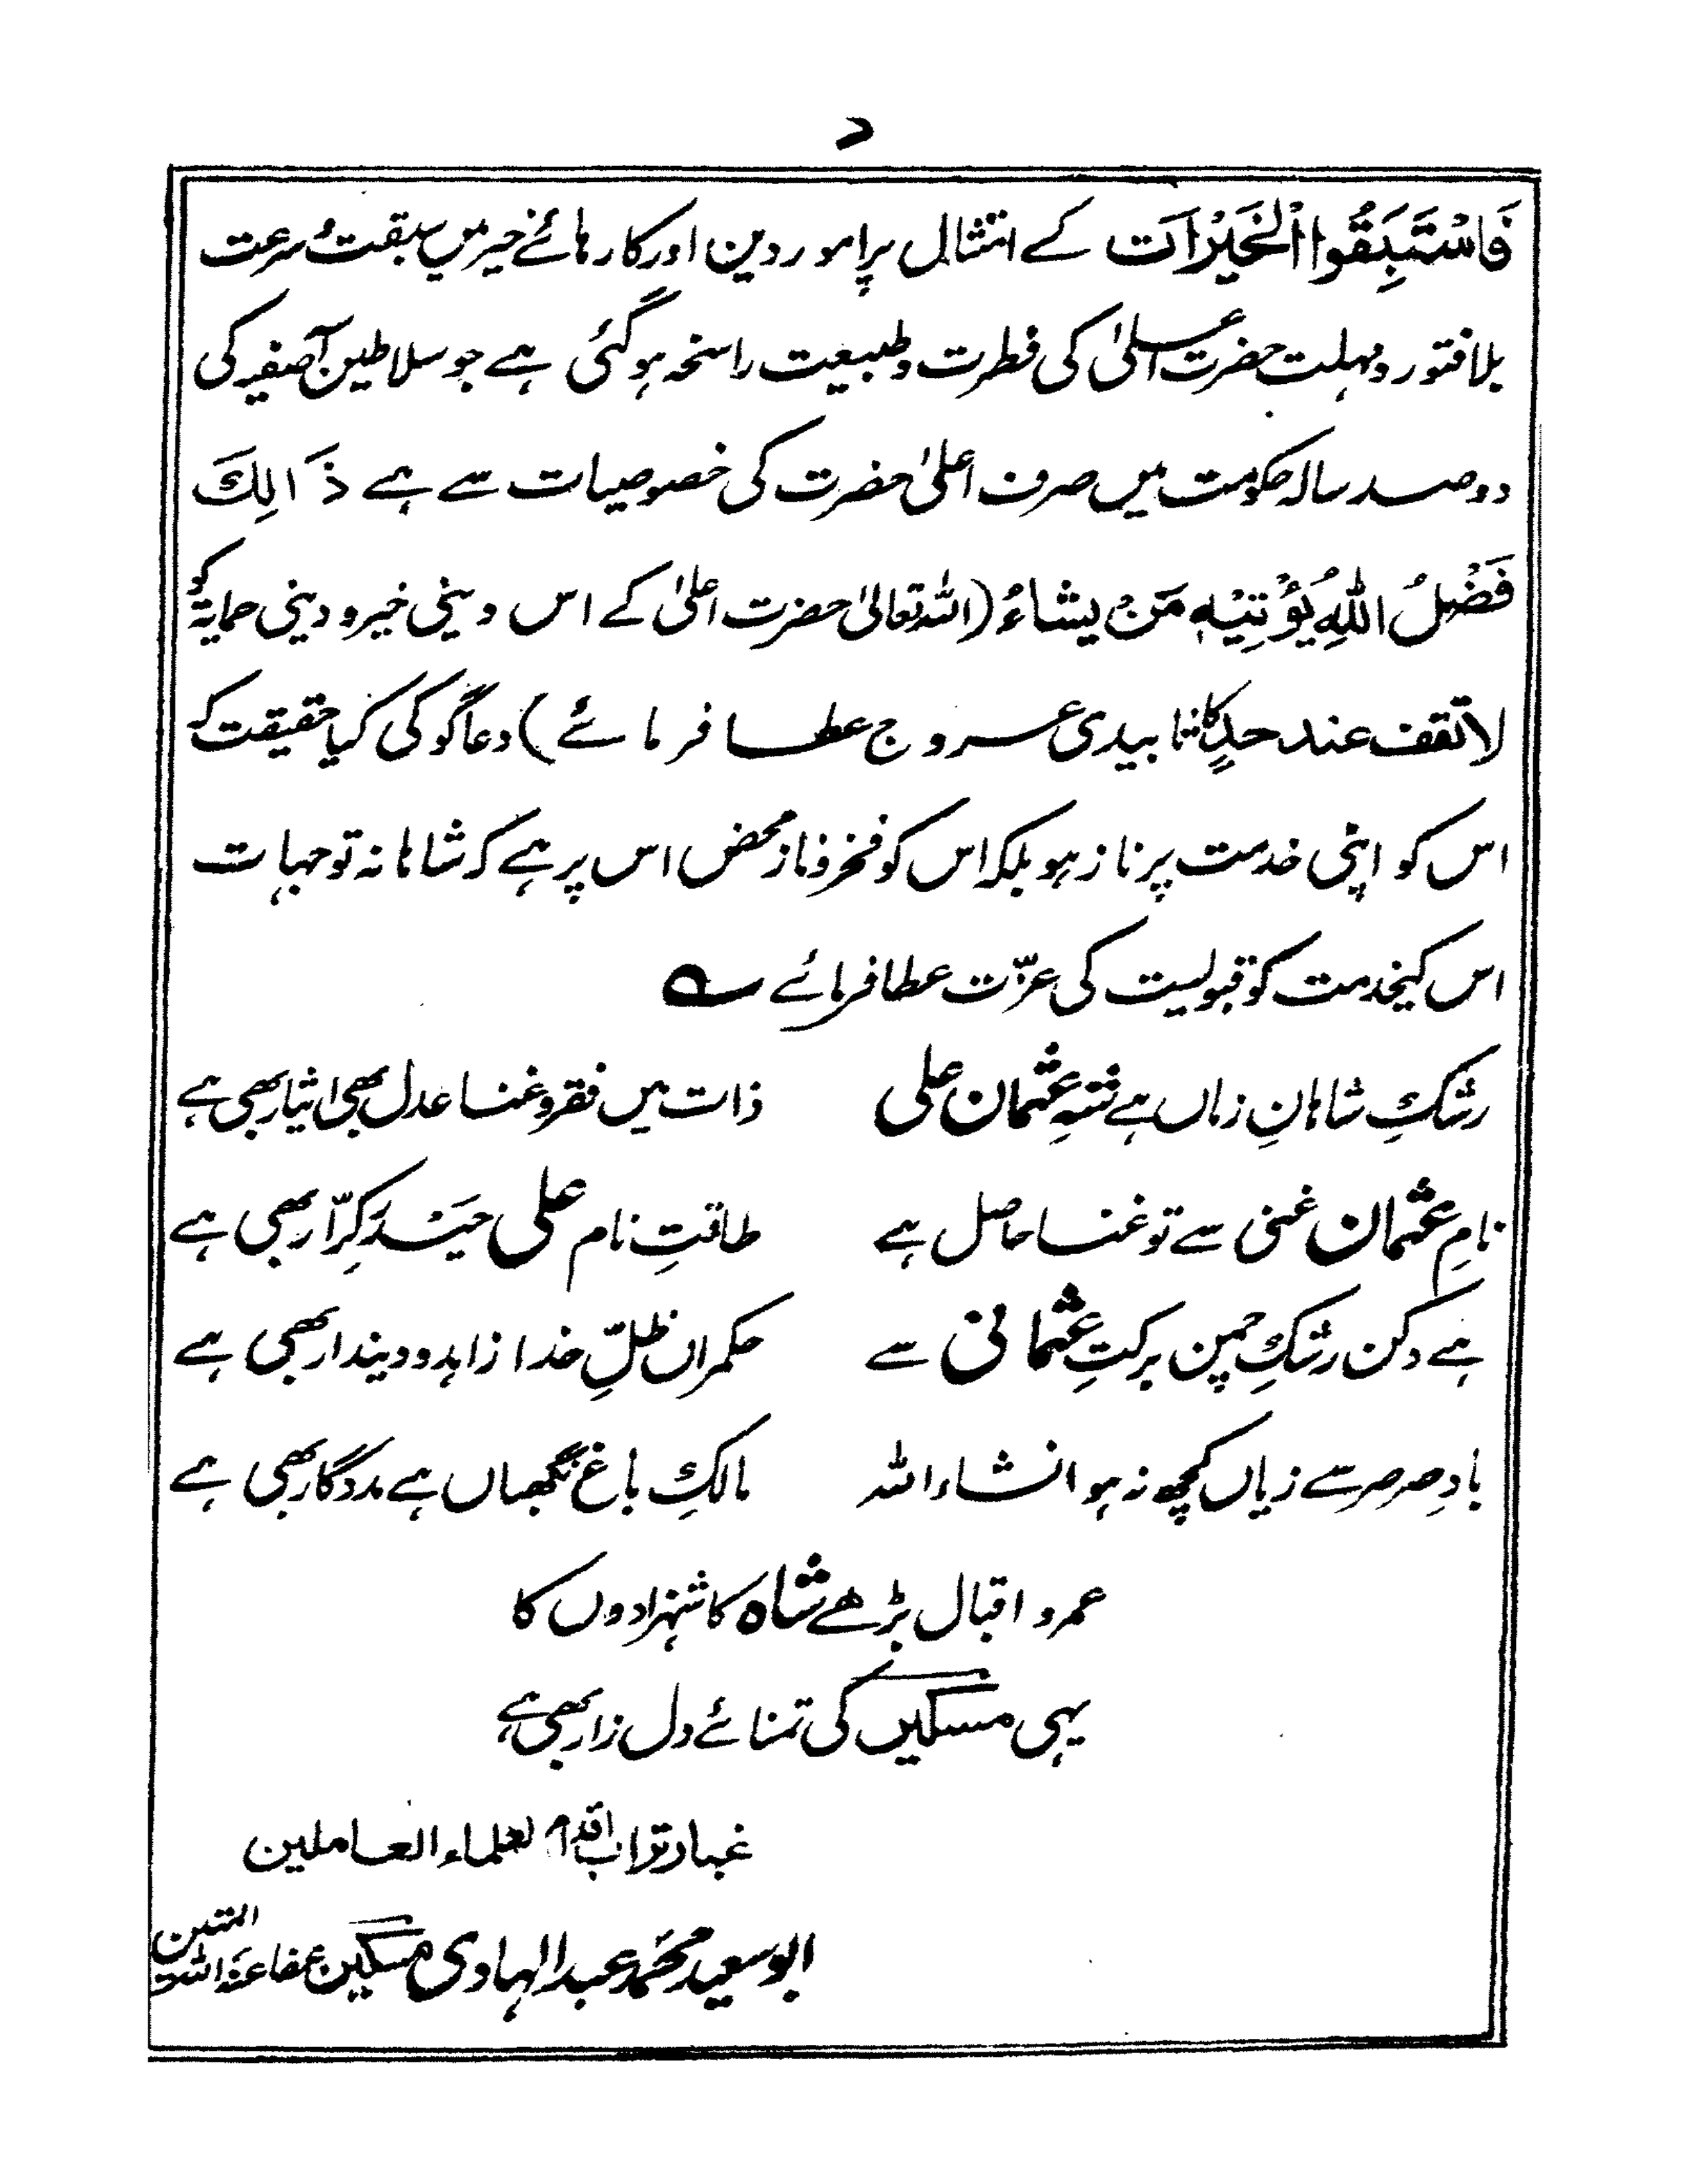 د
فَاسْتَبِقُوا الْخَيْرَاتَ کے امتثال پر امور دین اور کارہائے خیر میں سبقت و سرعت
بلا فتور و مہلت حضرت اعلیٰ کی فطرت و طبیعت راسخہ ہوگئی ہے جو سلاطین آصفیہ کی
دو صد سالہ حکومت میں صرف اعلیٰ حضرت کی خصوصیات سے ہے ذَالِكَ
فَضْلُ اللّٰهِ يُؤْتِيْهِ مَنْ يشاءُ (اللہ تعالیٰ حضرت اعلیٰ کے اس دینی خیر و دینی حمایۃ کو
لا تقف عند حدٍ کا تا بیدی عروج عطا فرمائے) دعاگو کی کیا حقیقت کہ
اس کو اپنی خدمت پر ناز ہو بلکہ اس کو فخر و ناز محض اس پر ہے کہ شاہانہ توجہات
اس کیخدمت کو قبولیت کی عزّت عطا فرمائے ؎
رشکِ شاہانِ زماں ہے شہِ عثمان علی
ذات میں فقر و غنا عدل بھی ایثار بھی ہے
نامِ عثمان غنی سے تو غنا حاصل ہے
طاقتِ نام علی حیدرِ کرّار بھی ہے
ہے دکن رشکِ چمن برکتِ عثمانی سے
حکمراں ظلِّ خدا زاہد و دیندار بھی ہے
بادِ صرصر سے زیاں کچھ نہ ہو انشاء اللہ
مالکِ باغ نگھباں ہے مددگار بھی ہے
عمر و اقبال بڑھے شاہ کا شہزادوں کا
یہی مسکیں کی تمنائے دل زار بھی ہے
غبار تراب اقدام لعلماء العاملین
ابو سعید محمد عبد الہادی مسکین عفا عنہ اللہ المتین